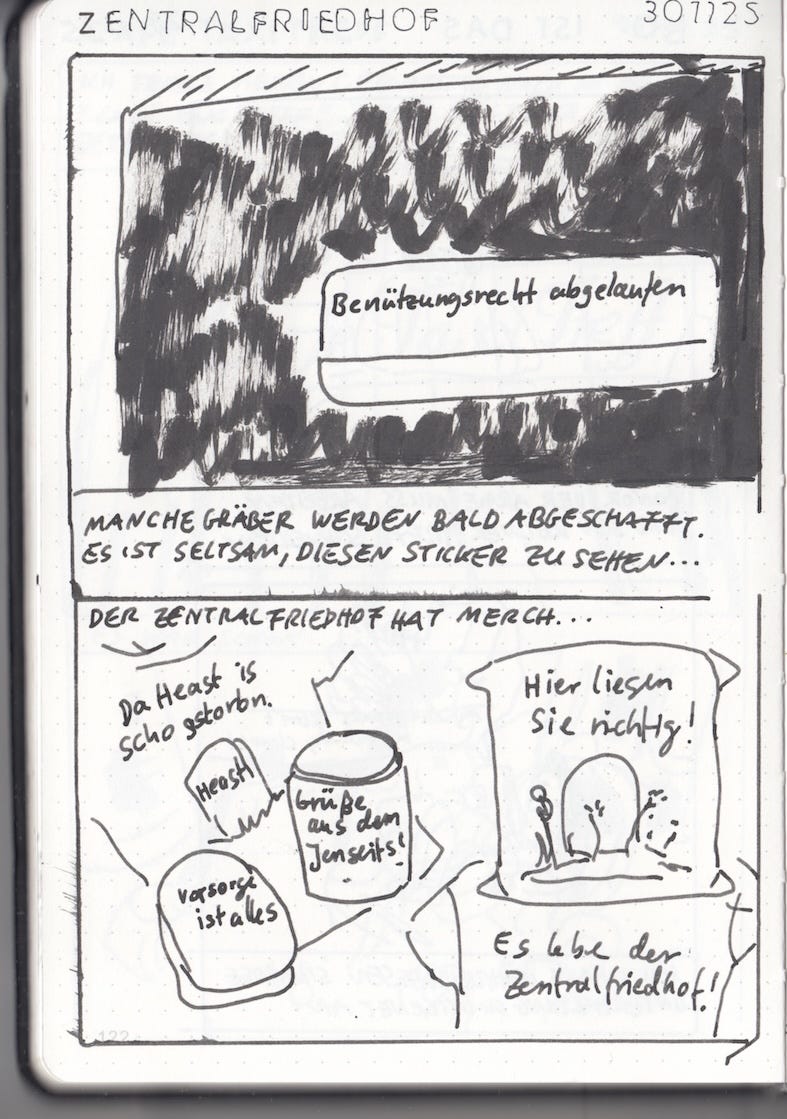 ZENTRALFRIEDHOF
301125
Benützungsrecht abgelaufen
MANCHE GRÄBER WERDEN BALD ABGESCHAFFT.
ES IST SELTSAM, DIESEN STICKER ZU SEHEN...
DER ZENTRALFRIEDHOF HAT MERCH...
Da Heast is
scho gstorbn.
Heast!
Grüße
aus dem
Jenseits!
Vorsorge
ist alles
Hier liegen
Sie richtig!
Es lebe der
Zentralfriedhof!
122